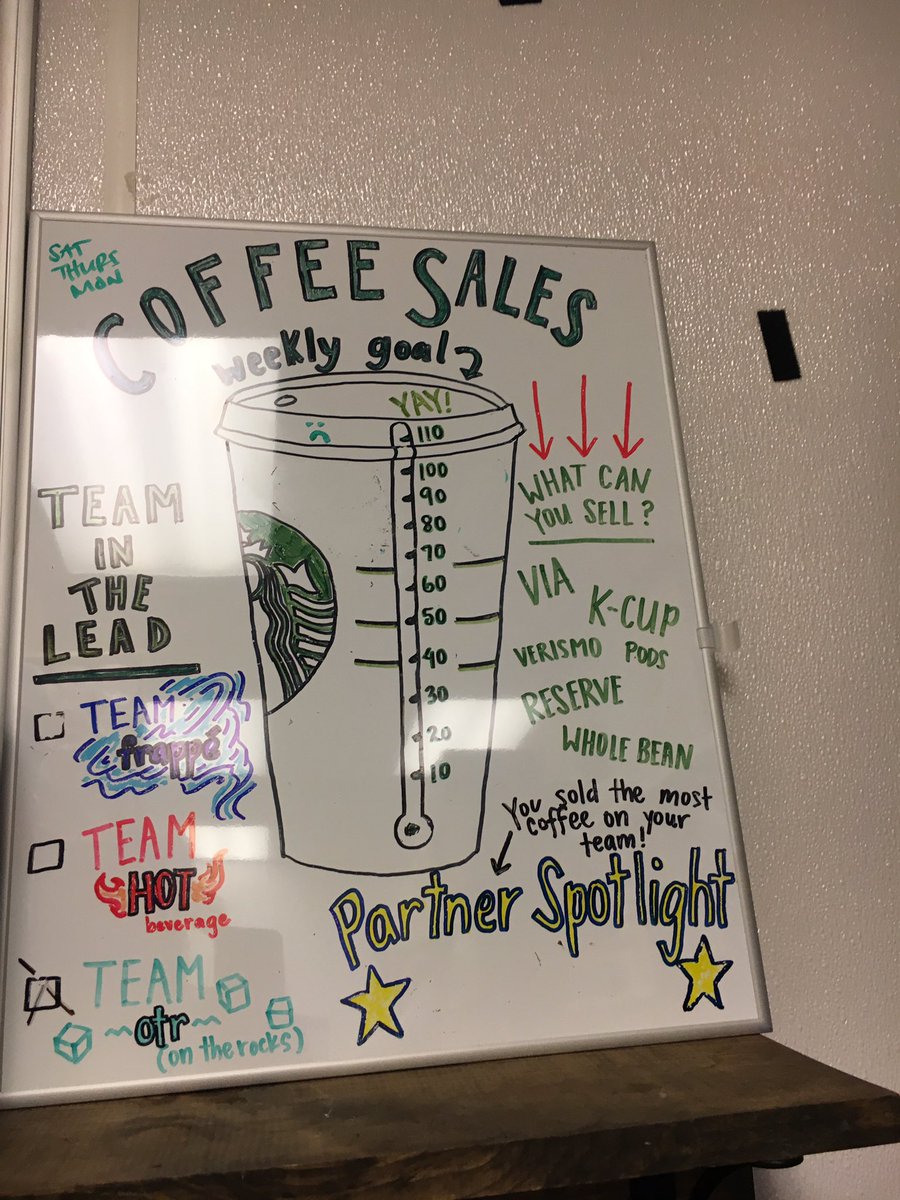 SAT
THURS
MON
COFFEE SALES
weekly goal
YAY!
110
100
90
80
70
60
50
40
30
20
10
TEAM
IN
THE
LEAD
TEAM
frappé
TEAM
HOT
beverage
TEAM
~otr~
(on the rocks)
WHAT CAN
YOU SELL?
VIA
K-CUP
VERISMO PODS
RESERVE
WHOLE BEAN
You sold the most
coffee on your
team!
Partner Spotlight